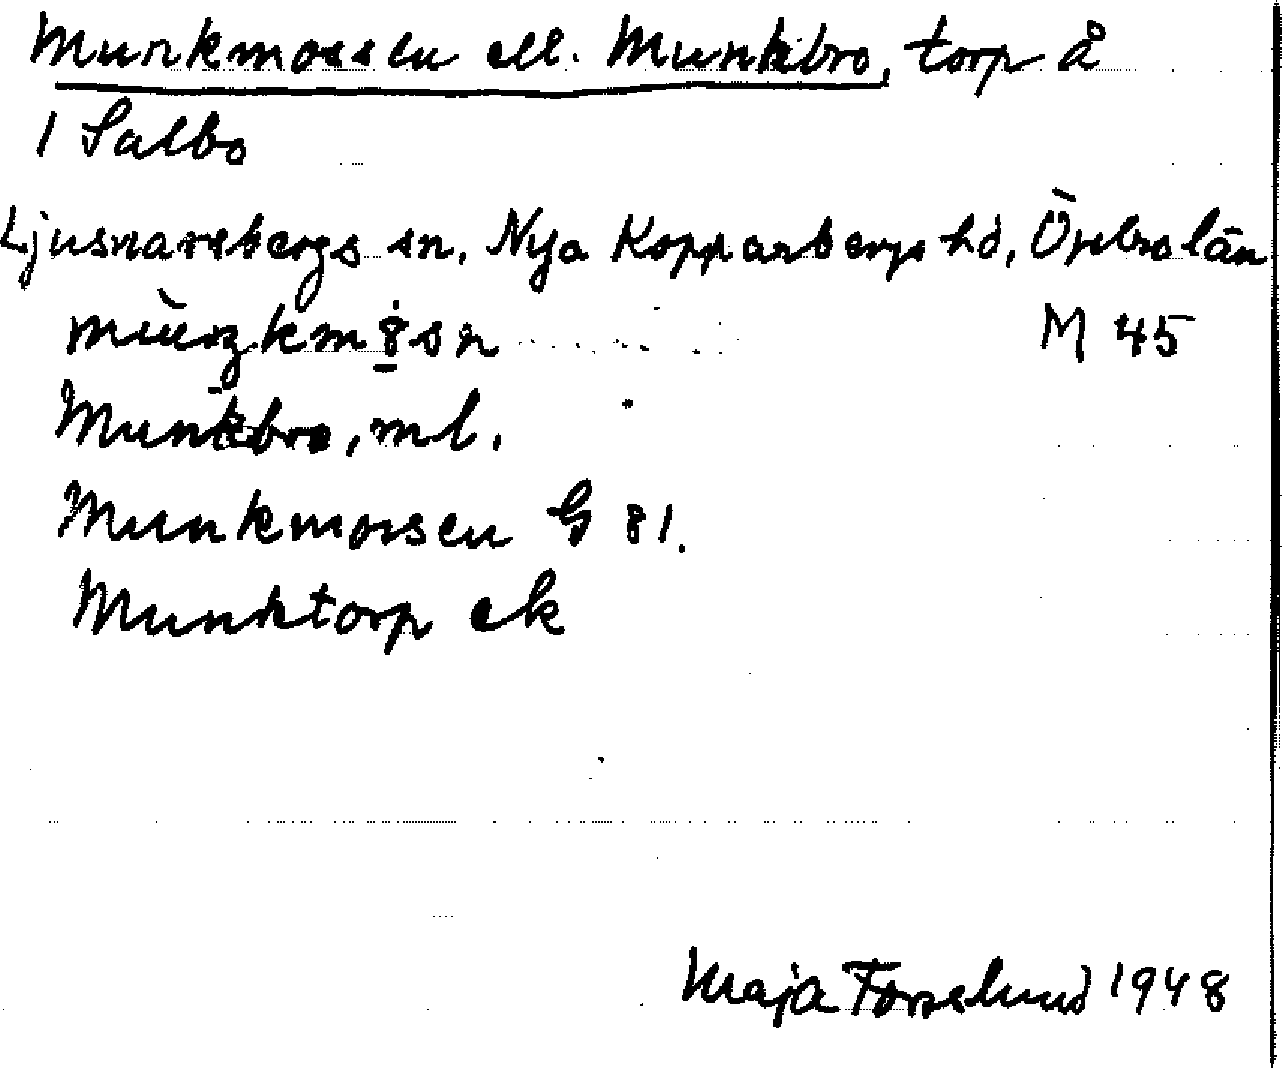 Munkmossen ell. Munkbro, torp å
1 Salbo
Ljusnarsbergs sn, Nya Kopparbergs hd, Örebro län
M 45
Munkbro, ml.
Munkmossen G 81.
Munktorp ek
Maja Forslund 1948